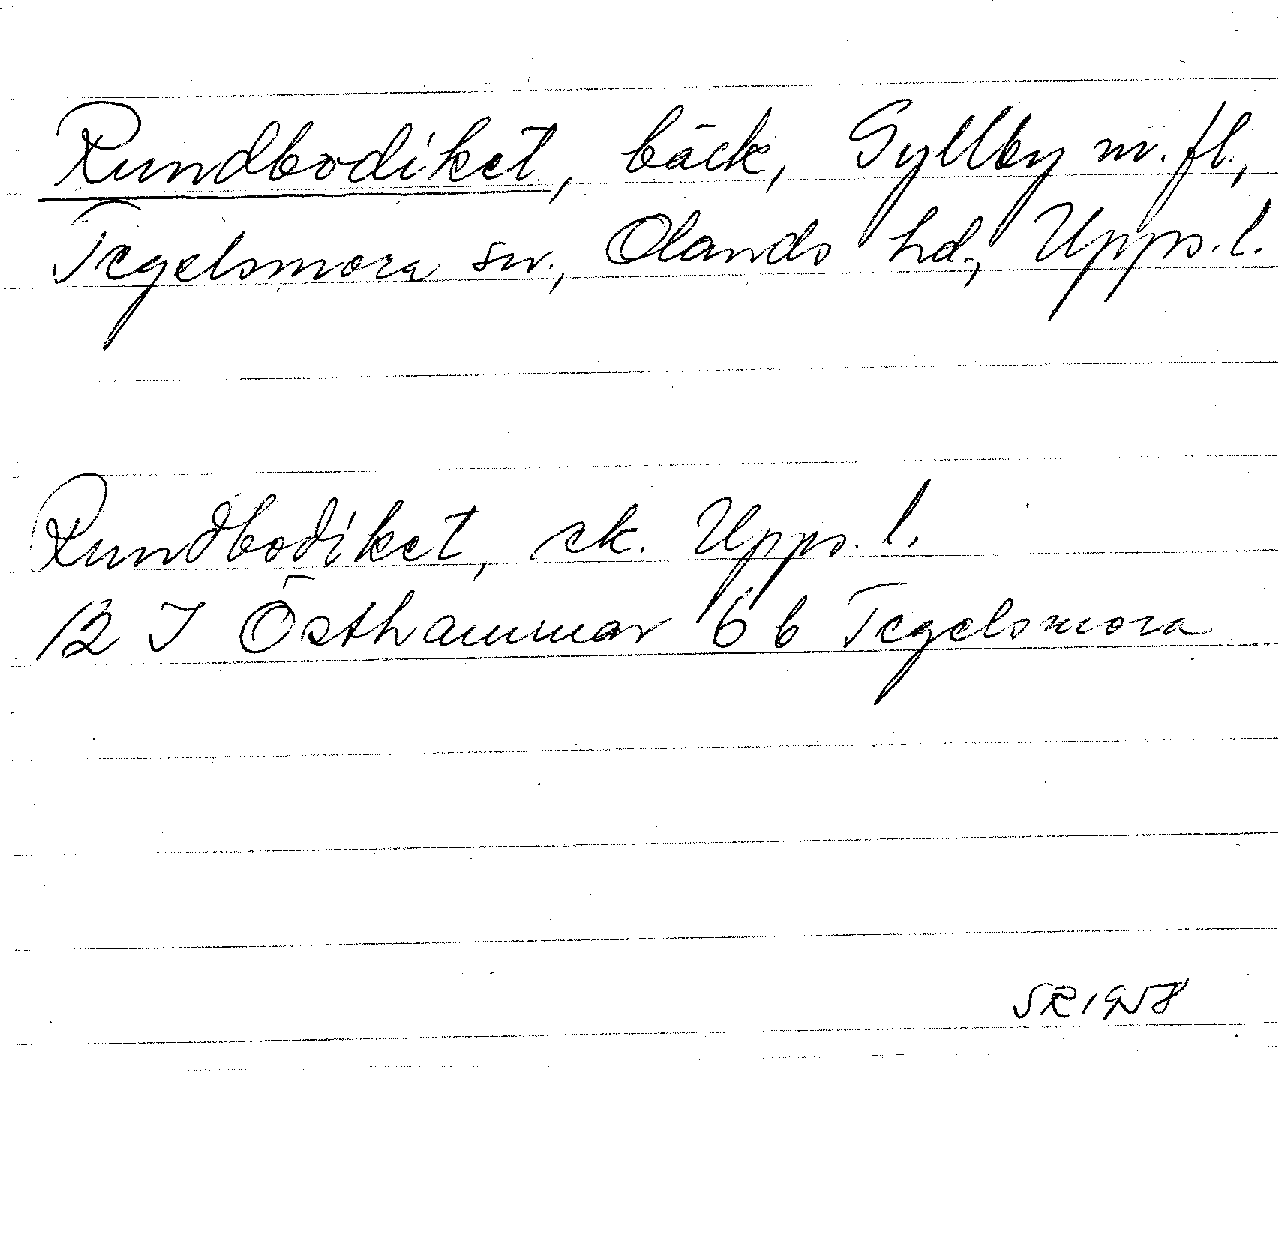 Rundbodiket, bäck, Gyllby m. fl.,
Tegelsmora sn., Olands hd., Upps. l.
Rundbodiket, ek. Upps. l.
12 I Östhammar 6 b Tegelsmora
SR 1958